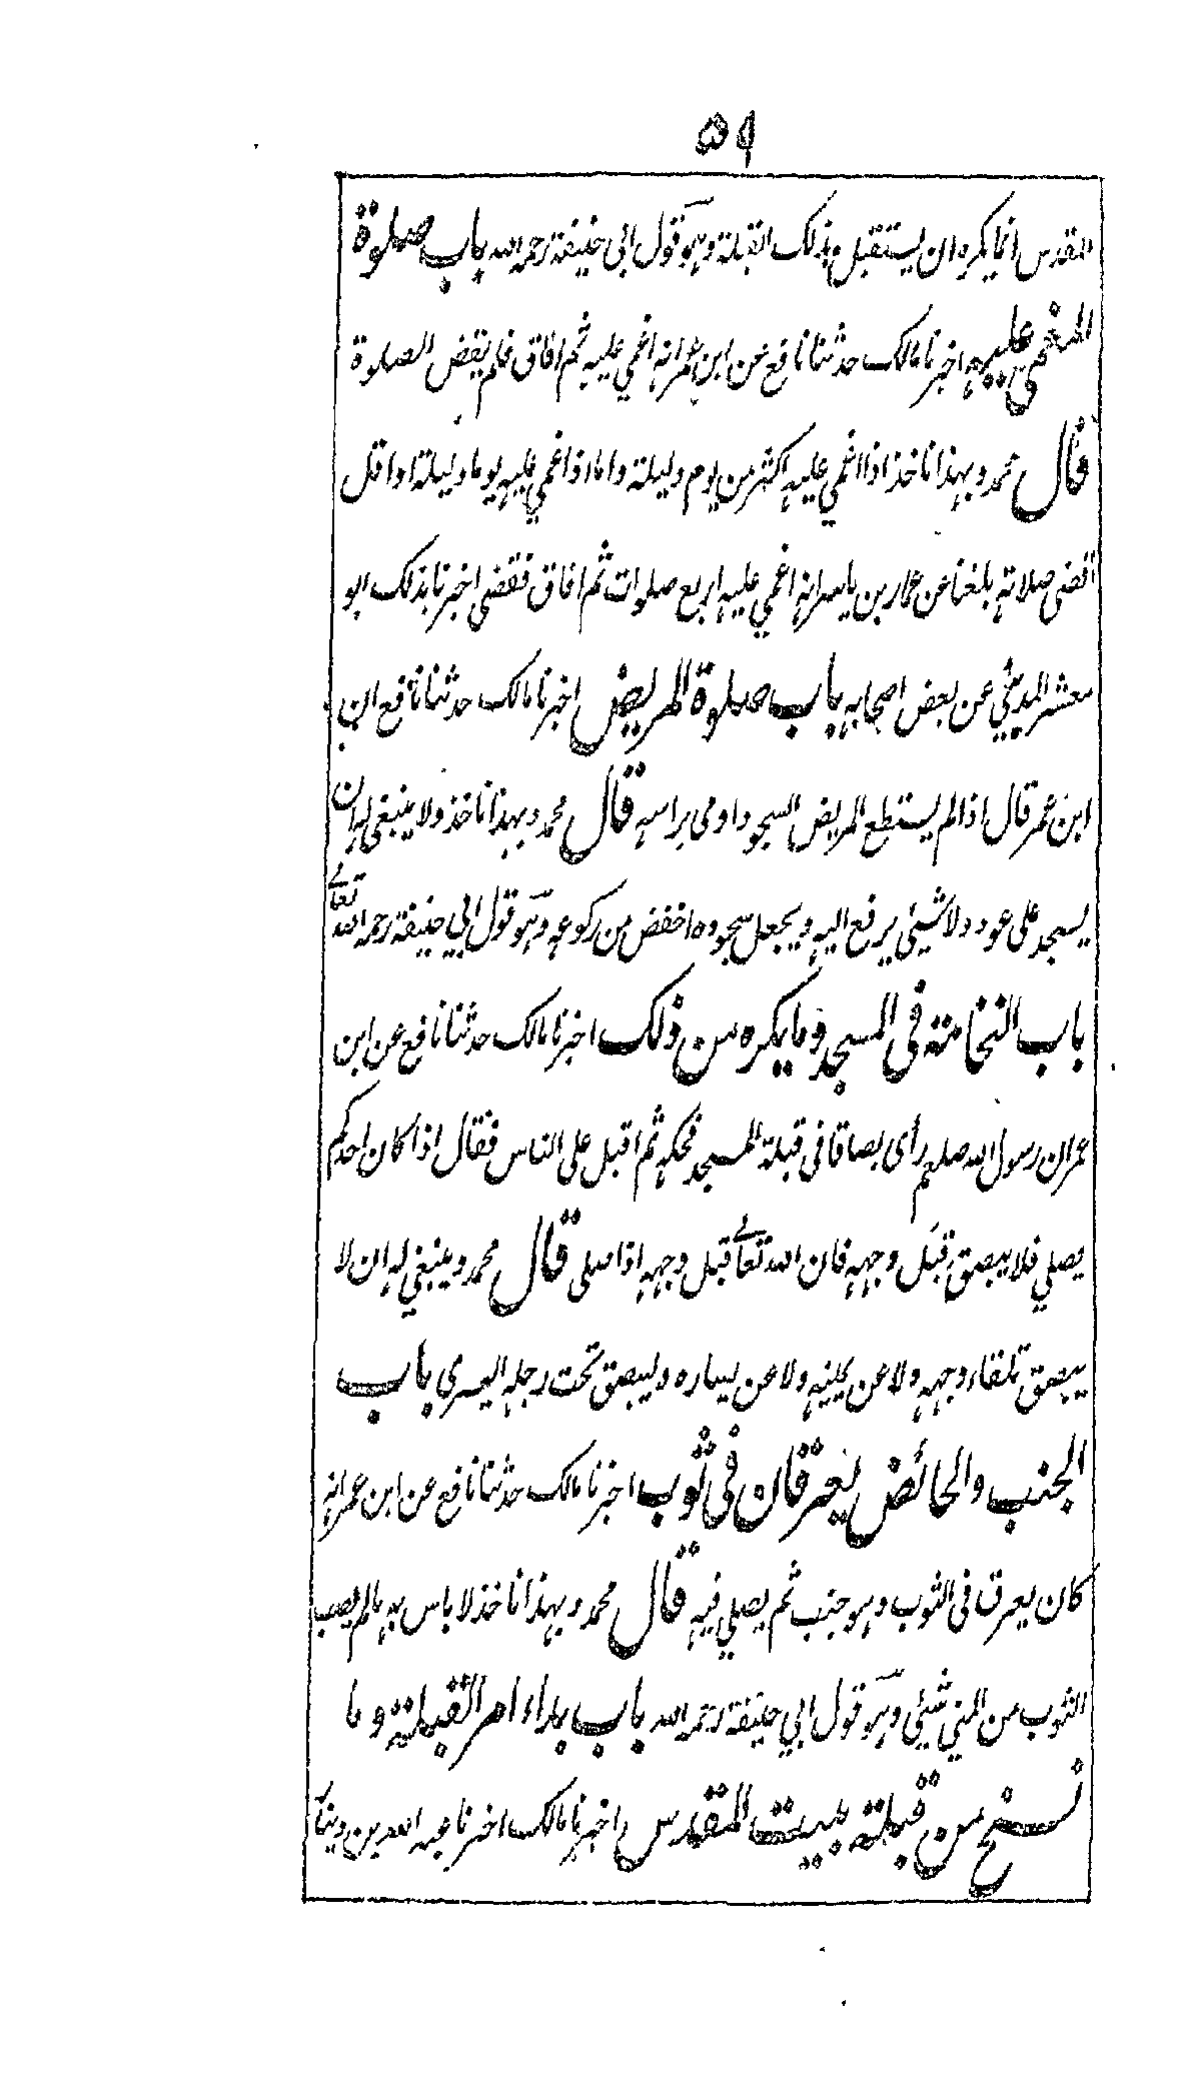 ۵۹
المقدس انما يكره ان يستقبل بذلك القبلة وهو قول ابي حنيفة رحمه الله باب صلوة
المغمى عليه اخبرنا مالك حدثنا نافع عن ابن عمر انه اغمي عليه ثم افاق فلم يقض الصلوة
قال محمد وبهذا ناخذ اذا اغمي عليه اكثر من يوم وليلة واما اذا اغمي عليه يوما وليلة او اقل
قضى صلاته بلغنا عن عمار بن ياسر انه اغمي عليه اربع صلوات ثم افاق فقضى اخبرنا بذلك ابو
معشر المديني عن بعض اصحابه باب صلوة المريض اخبرنا مالك حدثنا نافع ان
ابن عمر قال اذا لم يستطع المريض السجود اومى براسه قال محمد وبهذا ناخذ ولا ينبغي له ان
يسجد على عود ولا شيئ يرفع اليه ويجعل سجوده اخفض من ركوعه وهو قول ابي حنيفة رحمه الله تعالى
باب النخامة في المسجد وما يكره من ذلك اخبرنا مالك حدثنا نافع عن ابن
عمر ان رسول الله صلعم رأى بصاقا في قبلة المسجد فحكه ثم اقبل على الناس فقال اذا كان احدكم
يصلي فلا يبصق قبل وجهه فان الله تعالى قبل وجهه اذا صلى قال محمد وينبغي له ان لا
يبصق تلقاء وجهه ولا عن يمينه ولا عن يساره وليبصق تحت رجله اليسرى باب
الجنب والحائض يعرقان في ثوب اخبرنا مالك حدثنا نافع عن ابن عمر انه
كان يعرق في الثوب وهو جنب ثم يصلي فيه قال محمد وبهذا ناخذ لا باس به ما لم يصب
الثوب من المني شيئ وهو قول ابي حنيفة رحمه الله باب بداء امر القبلة وما
نسخ من قبلة بيت المقدس اخبرنا مالك اخبرنا عبد الله بن دينار